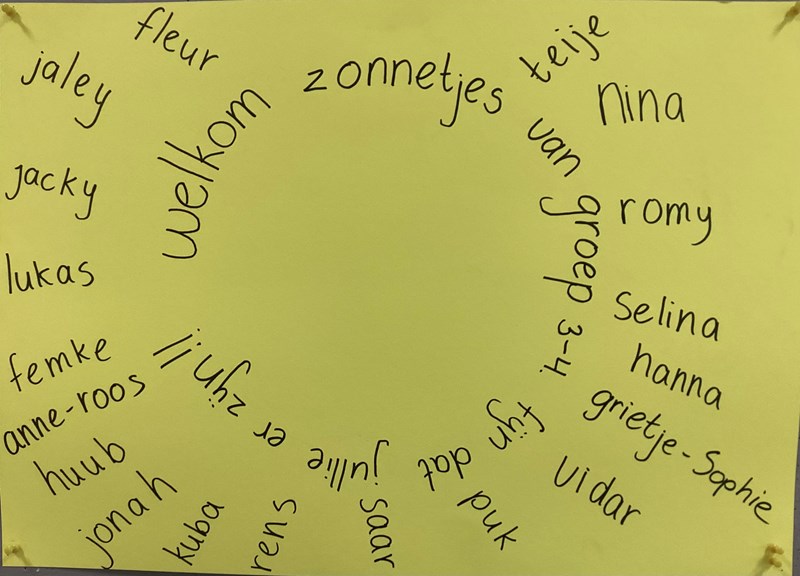 welkom zonnetjes van groep 3-4! fijn dat jullie er zijn!!
fleur
teije
nina
romy
selina
hanna
grietje-Sophie
vidar
puk
saar
rens
kuba
jonah
huub
anne-roos
femke
lukas
jacky
jaley